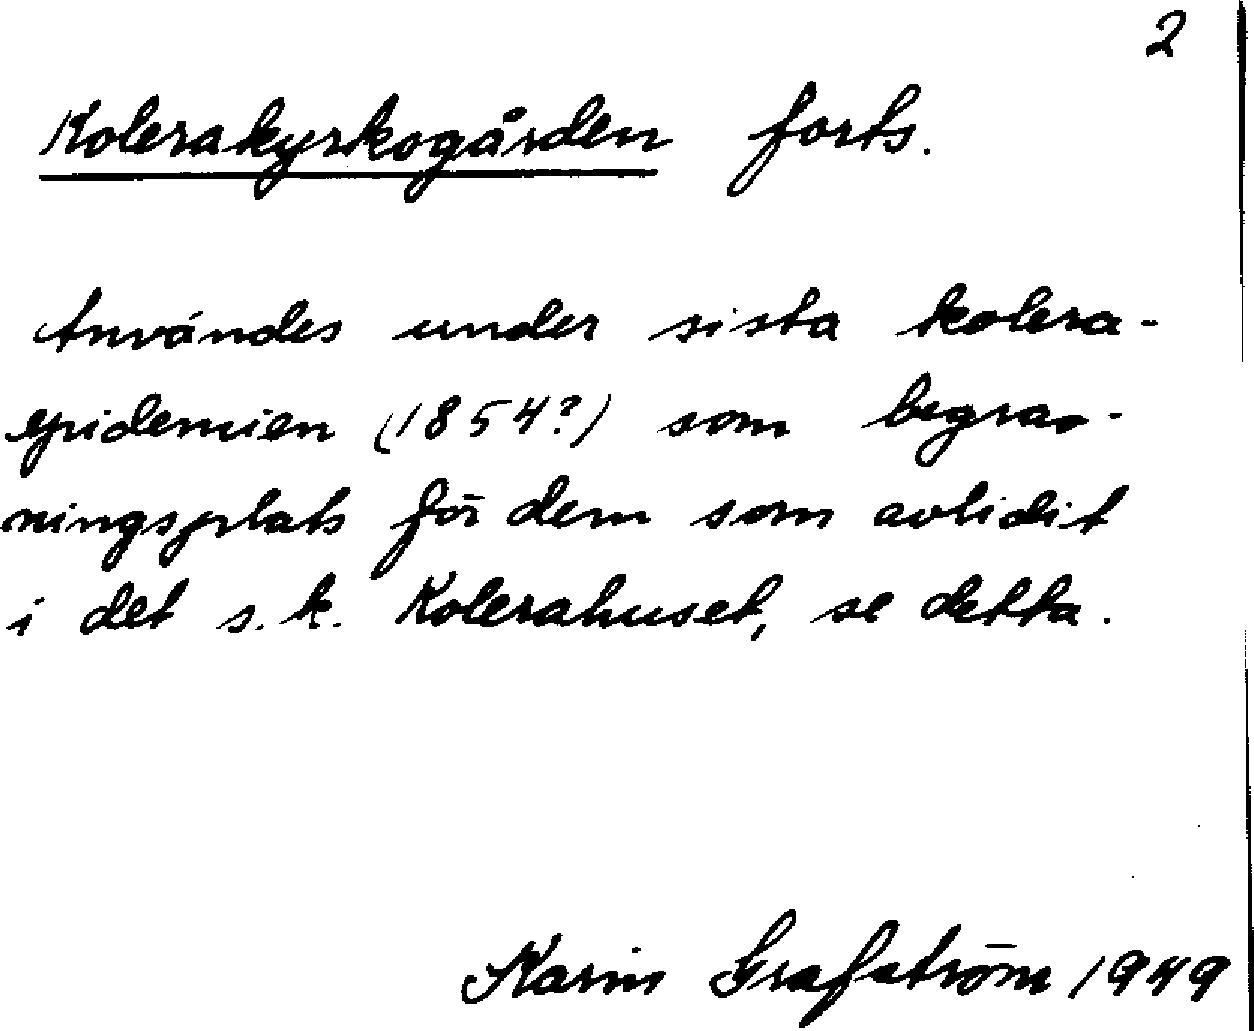 2
Kolerakyrkogården forts.
Användes under sista kolera-
epidemien (1854?) som begrav-
ningsplats för dem som avlidit
i det s.k. Kolerahuset, se detta.
Karin Grafström 1949